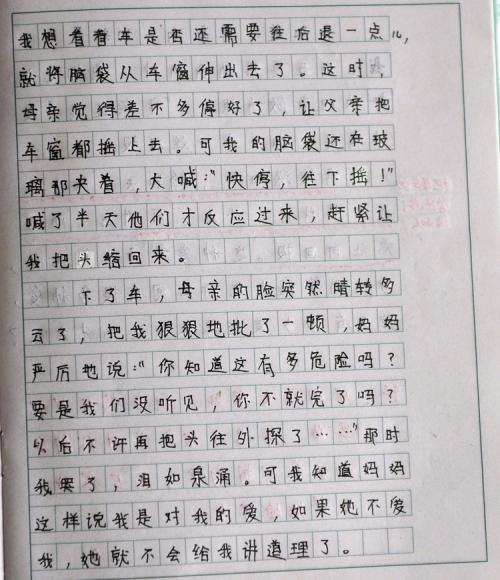 我想看看车是否还需要往后退一点儿，
就将脑袋从车窗伸出去了。这时，
母亲觉得差不多停好了，让父亲把
车窗都摇上去。可我的脑袋还在玻
璃那夹着，大喊：“快停，往下摇！”
喊了半天他们才反应过来，赶紧让
我把头缩回来。
下了车，母亲的脸突然晴转多
云了，把我狠狠地批了一顿，妈妈
严厉地说：“你知道这有多危险吗？
要是我们没听见，你不就完了吗？
以后不许再把头往外探了……”那时
我哭了，泪如泉涌。可我知道妈妈
这样说我是对我的爱，如果她不爱
我，她就不会给我讲道理了。